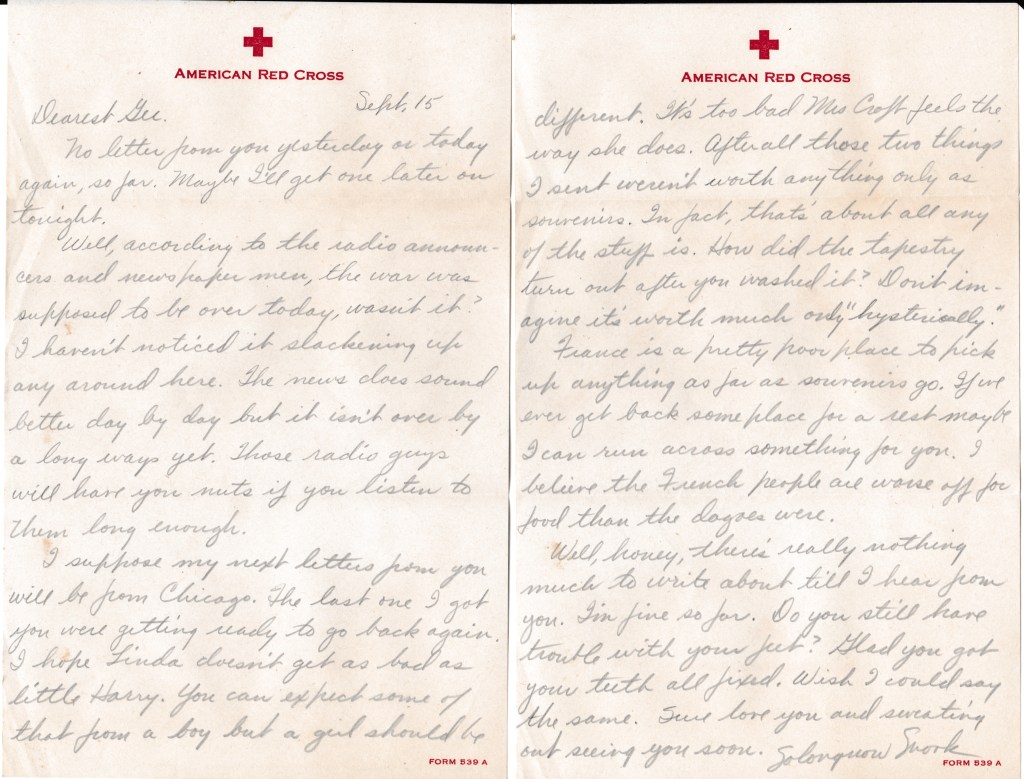 American Red Cross
Sept. 15
Dearest Gee.
No letter from you yesterday or today
again, so far. Maybe I'll get one later on
tonight.
Well, according to the radio announ-
cers and newspaper men, the war was
supposed to be over today, wasn't it?
I haven't noticed it slackening up
any around here. The news does sound
better day by day but it isn't over by
a long ways yet. Those radio guys
will have you nuts if you listen to
them long enough.
I suppose my next letters from you
will be from Chicago. The last one I got
you were getting ready to go back again.
I hope Linda doesn't get as bad as
little Harry. You can expect some of
that from a boy but a girl should be
FORM 539 A
American Red Cross
different. It's too bad Mrs Croft feels the
way she does. After all those two things
I sent weren't worth anything only as
souvenirs. In fact, that's about all any
of the stuff is. How did the tapestry
turn out after you washed it? Don't im-
agine it's worth much only "hysterically."
France is a pretty poor place to pick
up anything as far as souvenirs go. If we
ever get back some place for a rest maybe
I can run across something for you. I
believe the French people are worse off for
food than the dagoes were.
Well, honey, there's really nothing
much to write about till I hear from
you. I'm fine so far. Do you still have
trouble with your feet? Glad you got
your teeth all fixed. Wish I could say
the same. Sure love you and sweating
out seeing you soon. Solongnow Snork
FORM 539 A